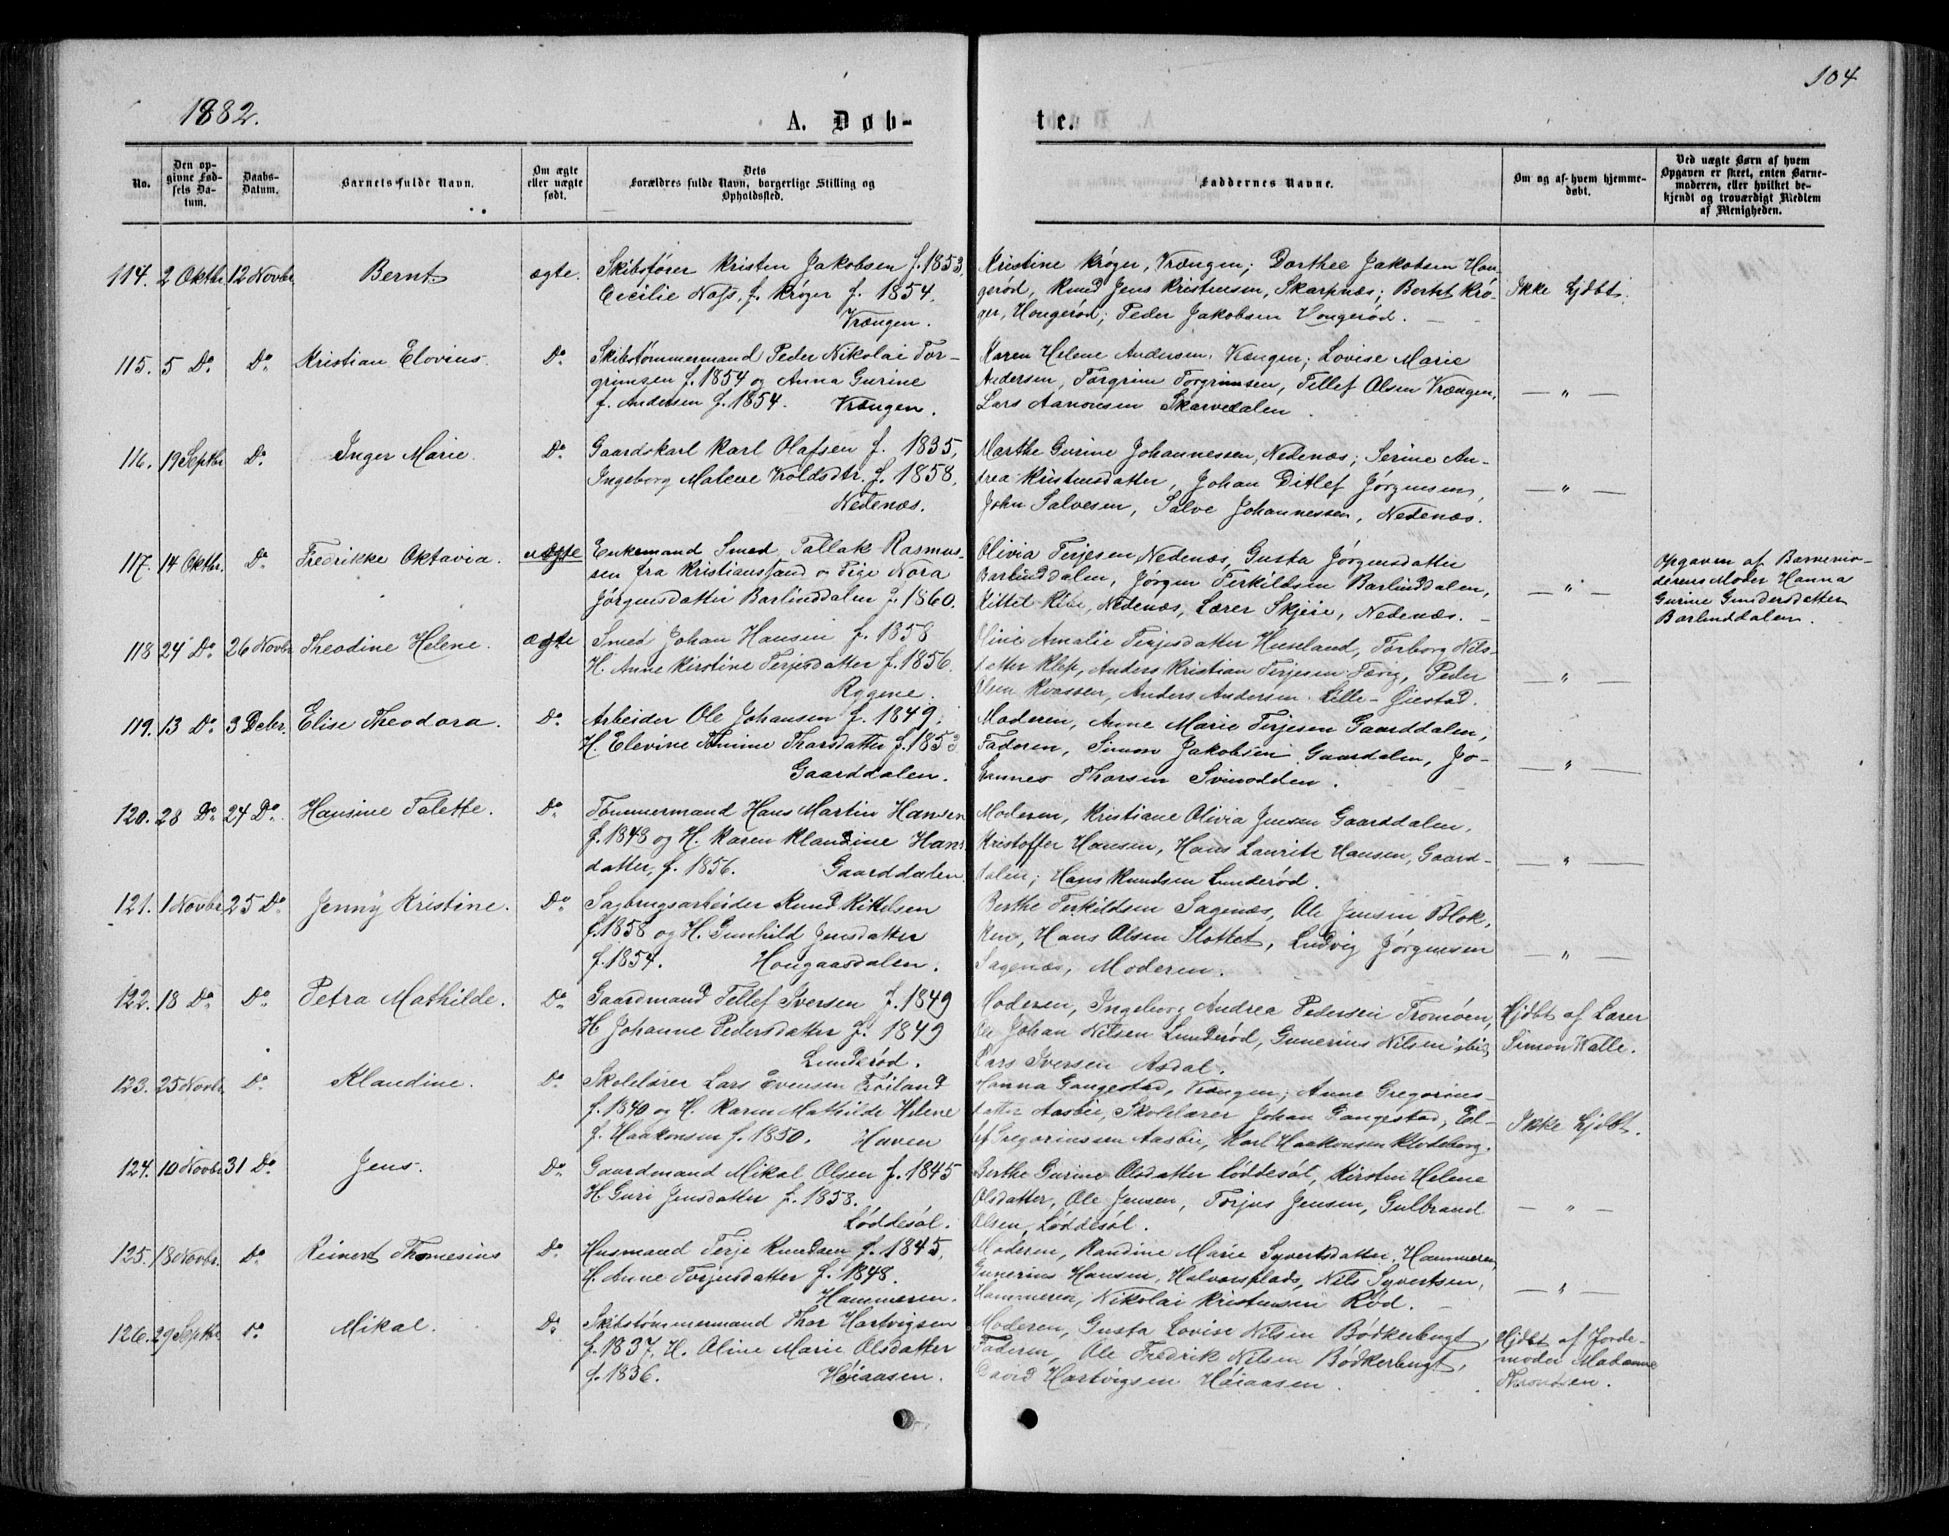 104
1882.
A. Døb-
te.
No.
Den op-
givne Fød-
sels Da-
tum.
Daabs-
Datum.
Barnets fulde Navn.
Om ægte
eller uægte
født.
Dets
Forældres fulde Navn, borgerlige Stilling og
Opholdssted.
Faddernes Navne.
Om og af hvem hjemme-
døbt.
Ved uægte Børn af hvem
Opgaven er skeet, enten Barne-
moderen, eller hvilket be-
kjendt og troværdigt Medlem
af Menigheden.
114. 2 Oktbr. 12 Novbr Bernt ægte.
Skibsfører Kristen Jakobsen f. 1853,
Cecilie Næss, f. Krøger f. 1854.
Vrængen.
Kristine Krøger, Vrængen; Dorthee Jakobsen Hou-
gerød, Knud Jens Kristensen, Skarpnæs; Berthe Krø-
ger, Hougerød; Peder Jakobsen Hougerød.
Ikke hjdbt.
115. 5 Do. Do. Kristian Elovius. Do.
Skibstømmermand Peder Nikolai Tor-
grimsen f. 1854 og Anna Gurine
f. Andersen f. 1854. Vrængen.
Karen Helene Andersen, Vrængen; Lovise Marie
Andersen, Torgrim Torgrimsen, Tellef Olsen Vrængen.
Lars Aanonsen Skarvedalen.
— " —
116. 19 Septbr Do. Inger Marie. Do.
Gaardskarl Karl Olafsen f. 1835,
Ingeborg Malene Kroldsdtr. f. 1858.
Nedenæs.
Marthe Gurine Johannessen, Nedenæs; Serine An-
drea Kristensdatter, Johan Ditlef Jørgensen,
John Salvesen, Salve Johannessen, Nedenæs.
— " —
117. 14 Oktbr. Do. Fredrikke Oktavia. uægte
Enkemand Smed Tallak Rasmus-
sen fra Kristianssand og Pige Nora
Jørgensdatter Barlinddalen f. 1860.
Olivia Terjesen Nedenæs, Gusta Jørgensdatter
Barlinddalen, Jørgen Terkildsen Barlinddalen,
Kittel Ribe, Nedenæs, Lærer Skjeie, Nedenæs.
— " —
Opgaven af Barnemo-
derens Moder Hanna
Gurine Gundersdatter
Barlinddalen.
118 24 Do. 26 Novbr Theodine Helene. ægte
Smed Johan Hansen f. 1858
H. Anne Kirstine Terjesdatter f. 1856.
Rygene.
Oline Amalie Terjesdatter Huseland, Torborg Nils-
datter Klep, Anders Kristian Terjesen Fævig, Peder
Olsen Kvassen, Anders Andersen Lille-Øiestad.
— " —
119. 13 Do. 3 Debr. Elise Theodora. Do.
Arbeider Ole Johansen f. 1849.
H. Elevine Amine Thorsdatter f. 1853
Gaarddalen.
Moderen, Anne Marie Terjesen Gaarddalen,
Faderen, Simon Jakobsen Gaardalen, Jo-
hannes Thorsen Svinodden.
— " —
120. 28 Do. 24 Do. Hansine Talette. Do.
Tømmermand Hans Martin Hansen
f. 1848 og H. Karen Klandine Hans-
datter, f. 1856. Gaarddalen.
Moderen, Kristiane Olivia Jensen Gaarddalen,
Kristoffer Hansen, Hans Lauritz Hansen, Gaard-
dalen; Hans Knudsen Lunderød.
— " —
121. 1 Novbr 25 Do. Jenny Kristine. Do.
Sagbrugsarbeider Knud Kittelsen
f. 1858 og H. Gunhild Jensdatter
f. 1854. Hougaasdalen.
Berthe Terkildsen Sagenæs, Ole Jensen Blok-
ken, Hans Olsen Slottet, Ludvig Jørgensen
Sagenæs, Moderen.
— " —
122. 18 Do. Do. Petra Mathilde. Do.
Gaardmand Tellef Iversen f. 1849
H. Johanne Pedersdatter f. 1849
Lunderød.
Moderen, Ingeborg Andrea Pedersen Tromøen,
Ole Johan Nilsen Lunderød, Gunerius Nilsen ibid,
Lars Iversen Asdal.
Hjdbt af Lærer
Simon Kalle.
123. 25 Novbr. Do. Klandine. Do.
Skolelærer Lars Evensen Frøiland
f. 1840 og H. Karen Mathilde Helene
f. Haakonsen f. 1850. Haven
Hanna Gangestad, Vrængen; Anne Gregorius-
datter Aasbie, Skolelærer Johan Gangestad, El-
lef Gregoriussen Aasbie, Karl Haakonsen Klodeborg.
Ikke hjdbt.
124. 10 Novbr 31 Do. Jens. Do.
Gaardmand Mikal Olsen f. 1845
H. Guri Jensdatter f. 1858.
Løddesøl.
Berthe Gurine Olsdatter Løddesøl, Kirsten Helene
Olsdatter, Ole Jensen, Torjus Jensen, Gulbrand
Olsen, Løddesøl.
— " —
125. 18 Novbr. Do. Reinert Thomesius Do.
Husmand Terje Knudsen f. 1845,
H. Anne Torjusdatter f. 1848.
Hammeren.
Moderen, Randine Marie Syvertsdatter, Hammeren,
Gunerius Hansen, Halvorsplads, Nils Syvertsen,
Hammeren, Nikolai Kristensen Rød.
— " —
126. 29 Septbr Do. Mikal. Do.
Skibstømmermand Thor Hartvigsen
f. 1837, H. Oline Marie Olsdatter
f. 1836. Høiaasen.
Moderen, Gusta Lovise Nilsen Bødkerbugt,
Faderen, Ole Fredrik Nilsen Bødkerbugt,
David Hartvigsen Høiaasen.
Hjdbt af Jorde-
moder Madamme
Thronsen.